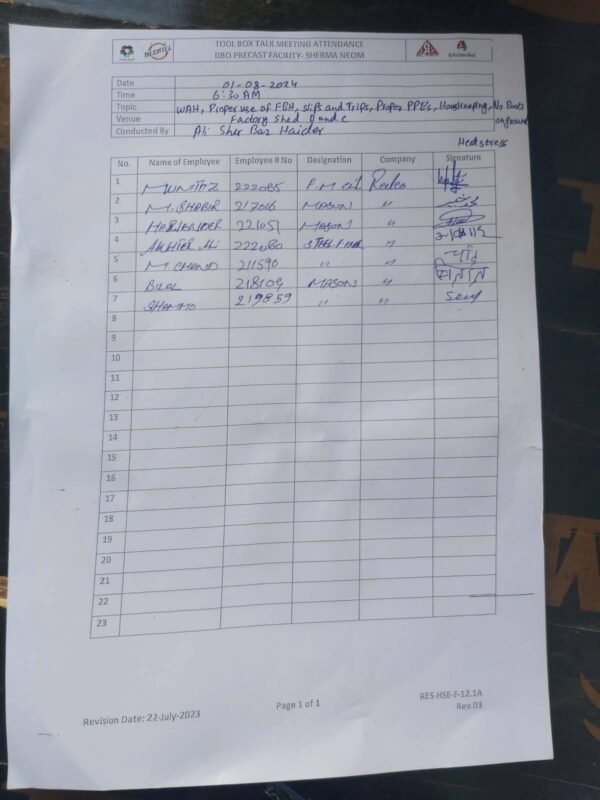 BECHTEL
TOOL BOX TALK MEETING ATTENDANCE
DBO PRECAST FACILITY- SHERMA NEOM
Date 01-08-2024
Time 6:30 AM
Topic WAH, Proper use of FBH, slips and Trips, Proper PPE's, Housekeeping, No Boots on ground
Venue Factory shed B and C
Conducted By Ali Sher Baz Haider
Heat stress
No. Name of Employee Employee # No Designation Company Signature
1 MUMTAZ 222085 Redco
2 M. SHABIR 217016 MASON "
3 HARJANDER 221051 MASON "
4 AKHTER Ali 222060 "
5 M CHAND 211590 " "
6 BILAL 218109 MASON "
7 219859 " "
8
9
10
11
12
13
14
15
16
17
18
19
20
21
22
23
Revision Date: 22-July-2023
Page 1 of 1
RES-HSE-F-12.1A
Rev 03